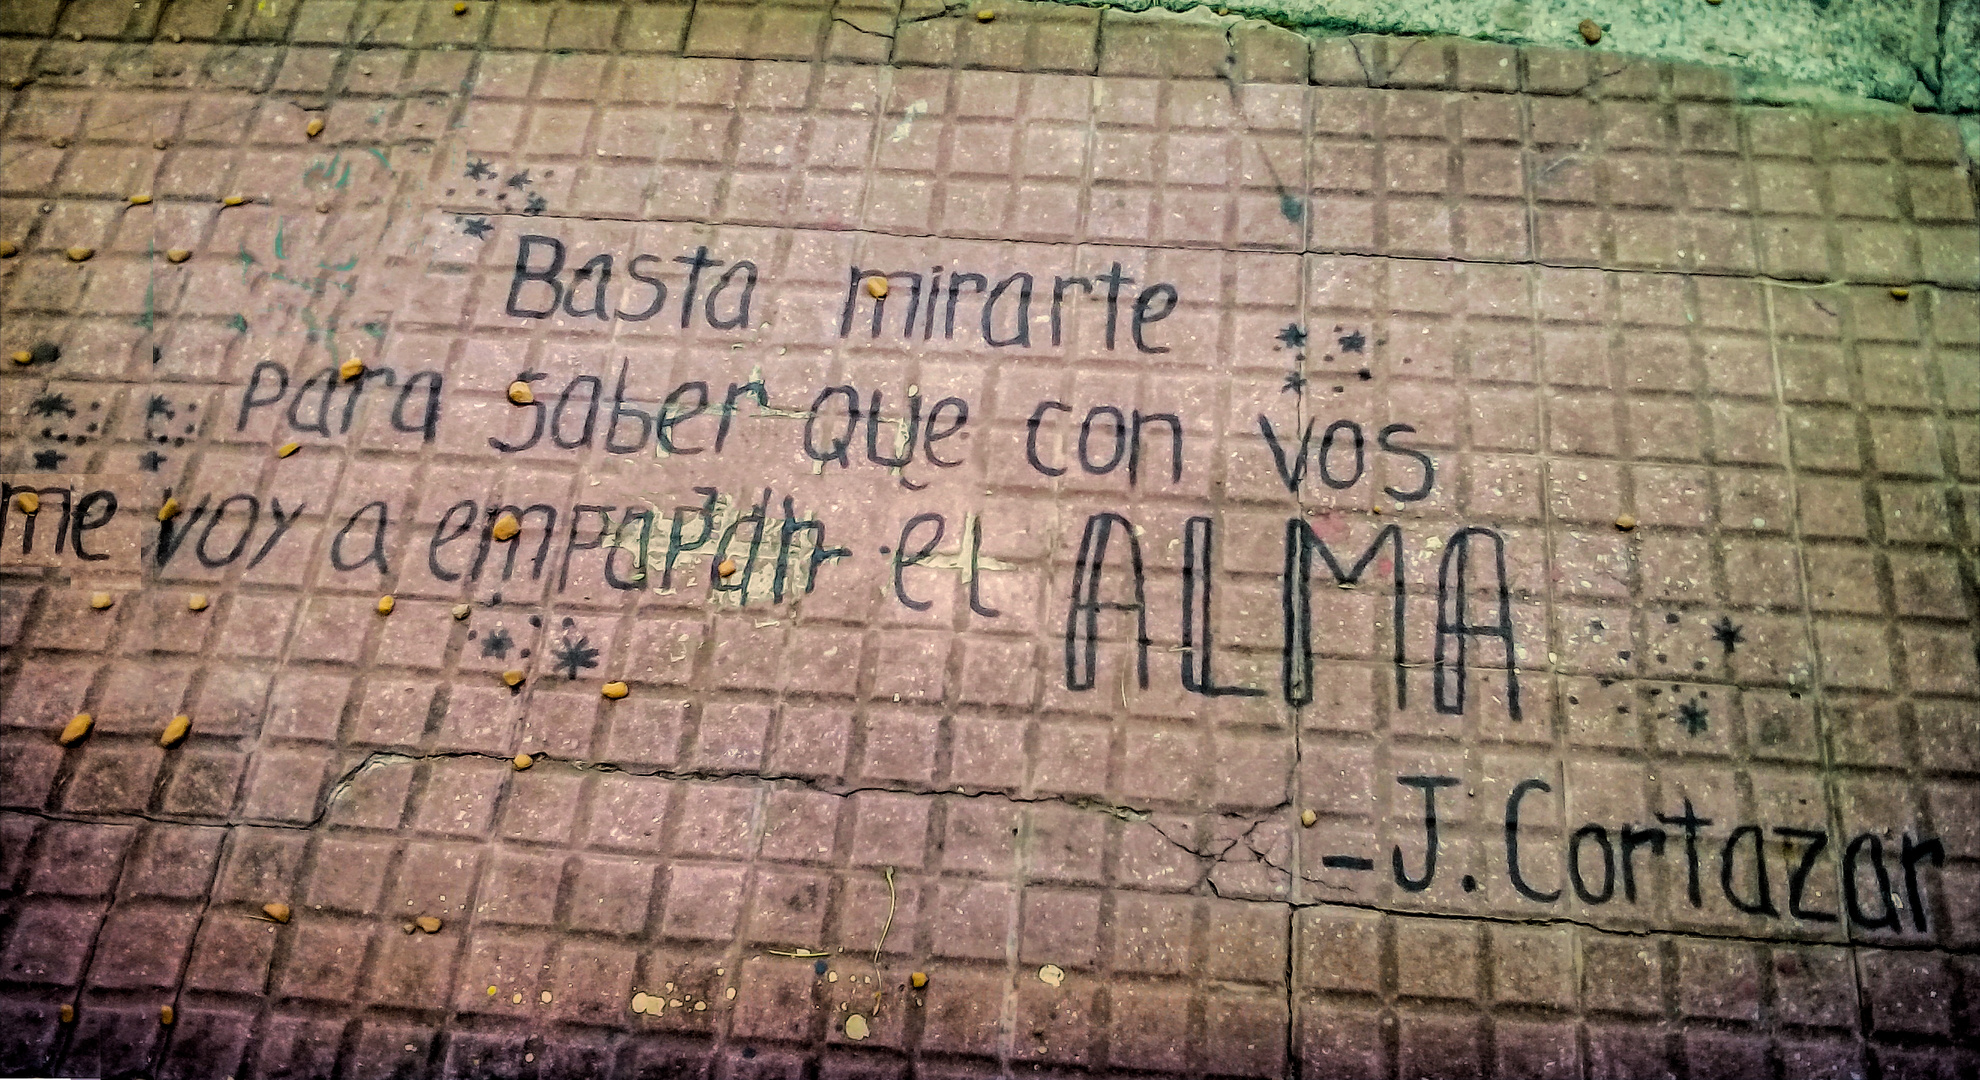 Basta mirarte
para saber que con vos
me voy a empapar el ALMA
-J. Cortazar